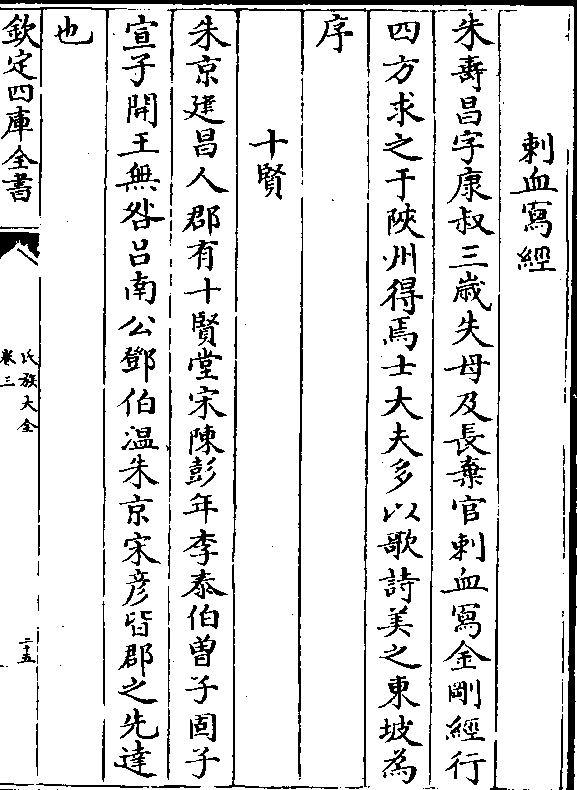 刺血寫經
朱壽昌字康叔三歲失母及長棄官刺血寫金剛經行
四方求之于陜州得焉士大夫多以歌詩美之東坡為
序
十賢
朱京建昌人郡有十賢堂宋陳彭年李泰伯曾子固子
宣子開王無咎呂南公鄧伯温朱京宋彦皆郡之先達
也
欽定四庫全書
氏族大全
卷三
二十五